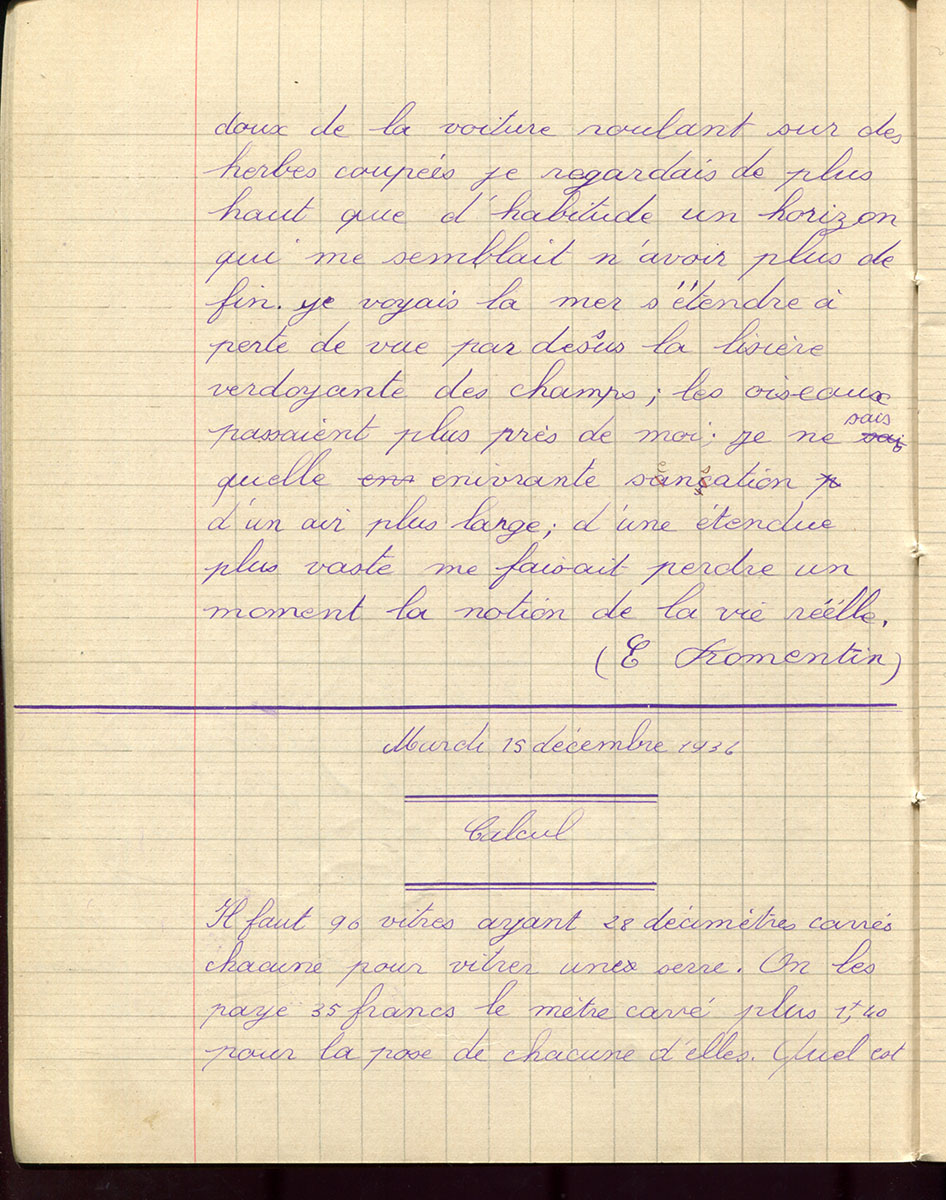 doux de la voiture roulant sur des
herbes coupées je regardais de plus
haut que d'habitude un horizon
qui me semblait n'avoir plus de
fin. je voyais la mer s'étendre à
perte de vue par dessus la lisière
verdoyante des champs; les oiseaux
passaient plus près de moi; je ne sais
quelle enivrante sensation
d'un air plus large; d'une étendue
plus vaste me faisait perdre un
moment la notion de la vie réélle.
(E Fromentin)
Mardi 15 décembre 1936
Calcul
Il faut 96 vitres ayant 28 décimètres carrés
chacune pour vitrer une serre. On les
paye 35 francs le mètre carré plus 1f,40
pour la pose de chacune d'elles. Quel est